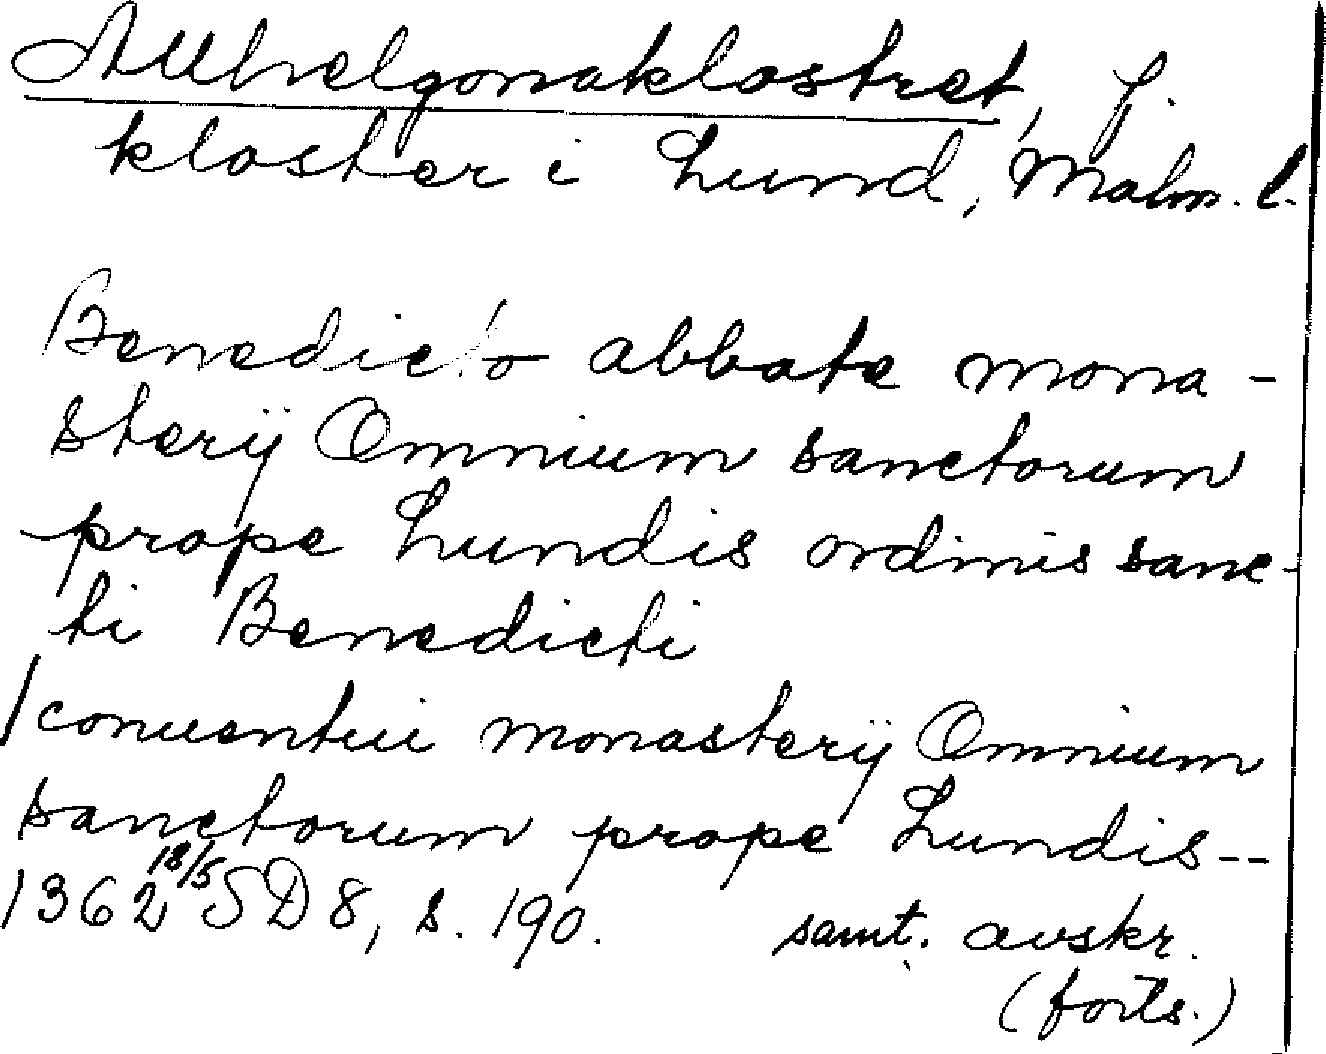 Allhelgonaklostret, f.
kloster i Lund, Malm. l.
Benedicto abbate mona-
sterÿ Omnium sanctorum
prope Lundis ordinis sanc-
ti Benedicti
/conuentui monasterÿ Omnium
sanctorum prope Lundis--
1362 18/5 SD 8, s. 190. samt. avskr.
(forts.)